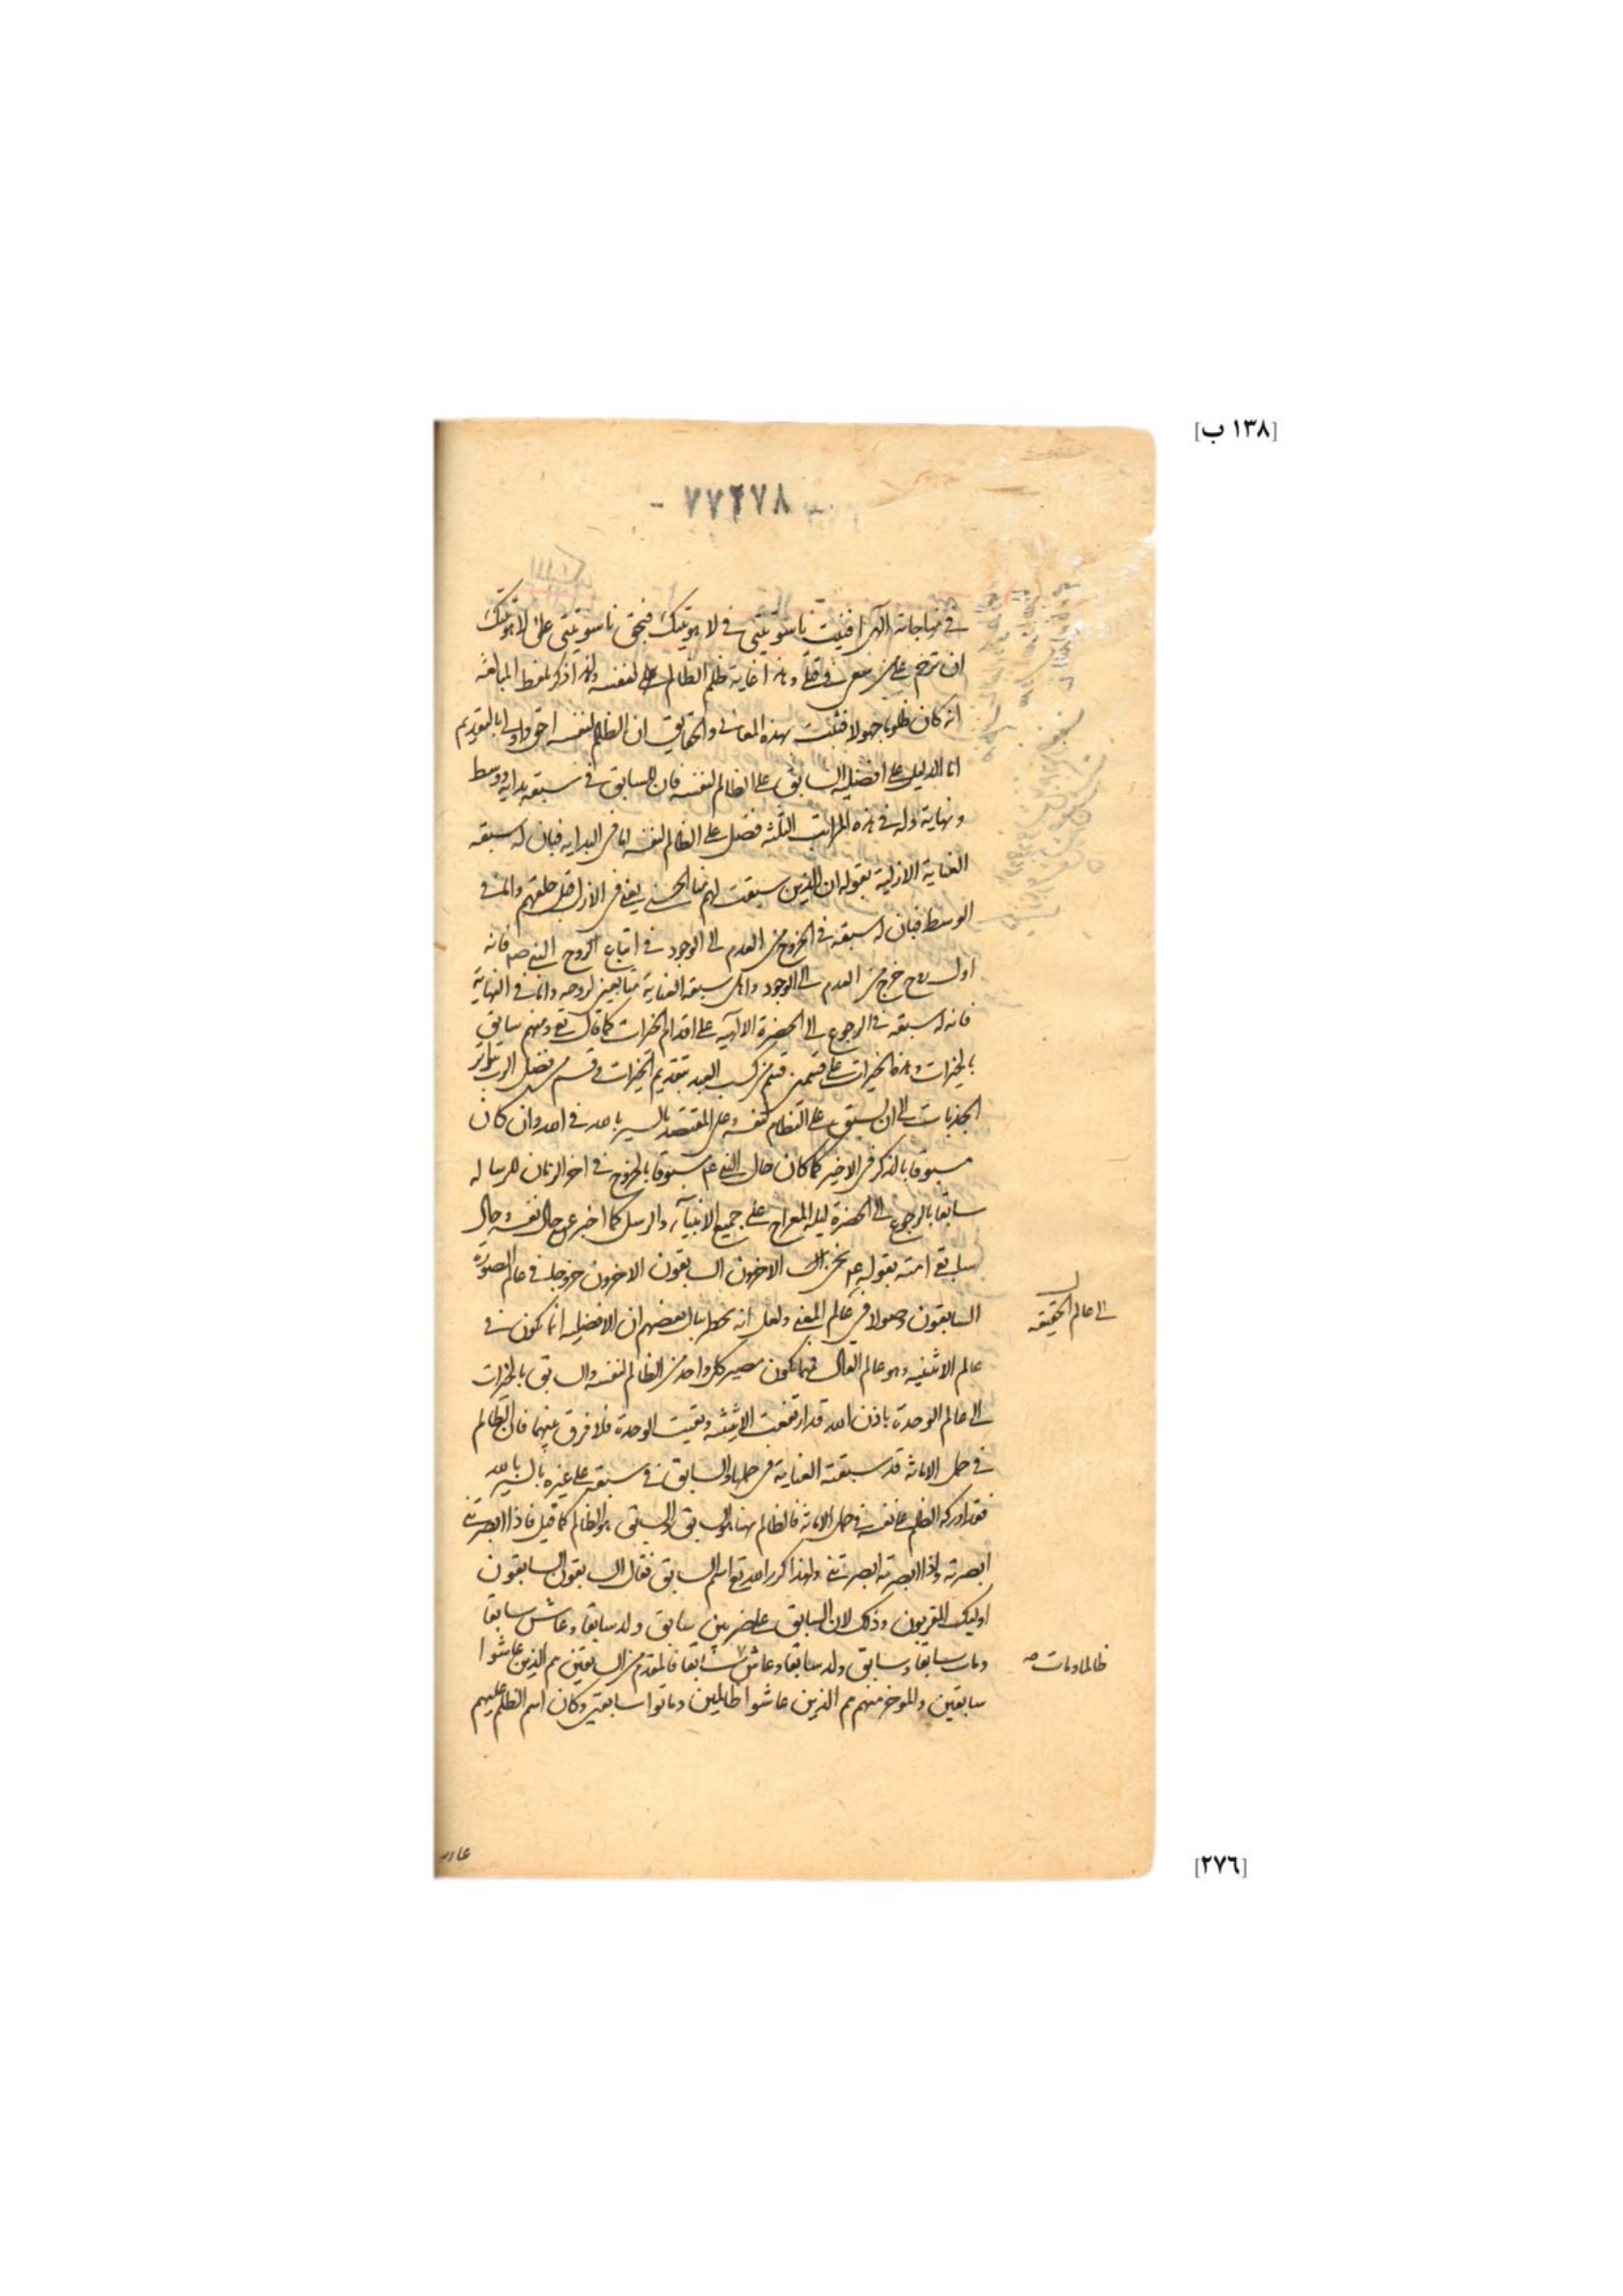 [١٣٨ ب]
- ٧٧٢٧٨ -
في مناجاته الهى افنيت ناسوتيتى في لاهوتيتك فبحق ناسوتيتى على لاهوتيتك
ان ترحم على من سعى في قتلى وهذا غاية ظلم الظالم على نفسه ولهذا ذكر بلفظ المبالغة
انه كان ظلوما جهولا فثبت بهذه المعاني والحقايق ان الظالم لنفسه احق واولى بالتقديم
اما الدليل على افضلية السابق على الظالم لنفسه فان للسابق في سبقه بداية ووسط
ونهاية وله في هذه المراتب الثلثة فضل على الظالم لنفسه اما في البداية فبان له سبقه
العناية الازلية بقوله ان الذين سبقت لهم منا الحسنى يعنى في الازل قبل خلقهم واما في
الوسط فبان له سبقه في الخروج من العدم الى الوجود في اتباع الروح النبى صم فانه
اول روح خرج من العدم الى الوجود واهل سبقه العناية متابعين لروحه واما في النهاية
فانه له سبقه في الرجوع الى الحضرة الالهية على اقدام الخيرات كما قال تع ومنهم سابق
بالخيرات وهذه الخيرات على قسمين قسم من كسب العبد بتقديم الخيرات وقسم من فضل الرب بتواتر
الجذبات الى ان يسبق على الظالم لنفسه وعلى المقتصد بالسير بالله في الله وان كان
مسبوقا بالذكر في الاخير كما كان حال النبى عم مسبوقا بالخروج في اخر الزمان للرسالة
سابقا بالرجوع الى الحضرة ليلة المعراج على جميع الانبياء والرسل كما اخبر عن حال نفسه وحال
سابقى امته بقوله عم نحن الاخرون السابقون الاخرون خروجا في عالم الصورة
السابقون وصولا في عالم المعنى ولعل انه يخطر ببال بعضهم ان الافضلية انما تكون في
الى عالم الحقيقه
عالم الاثنينيه وهو عالم فمهما يكون مصير كل واحد من الظالم لنفسه والسابق بالخيرات
الى عالم الوحدة باذن الله قد ارتفعت الاثنينيه وبقيت الوحدة فلا فرق بينهما فان الظالم
في حمل الامانة قد سبقته العناية في حملها والسابق في سبقه على غيره بالسير بالله
فقد ادركه الظلم على نفسه في حمل الامانة فالظالم هنا هو السابق والسابق هو الظالم كما قيل فاذا ابصرتنى
ابصرته واذا ابصرته ابصرتنى ولهذا كرر الله تع اسم السابق فقال السابقون السابقون
اوليك المقربون وذلك لان السابق على ضربين سابق ولد سابقا وعاش سابقا
ومات سابقا وسابق ولد سابقا وعاش سابقا فالمقدم من السابقين هم الذين عاشوا
ظالما ومات صه
سابقين والموخر منهم هم الذين عاشوا ظالمين وماتوا سابقين وكان اسم الظلم عليهم
[٢٧٦]